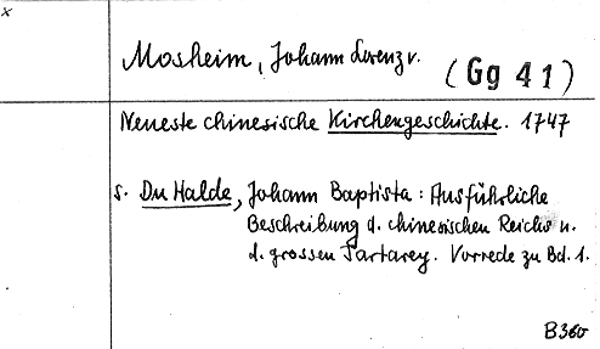 x
Mosheim, Johann Lorenz v. (Gg 41)
Neueste chinesische Kirchengeschichte. 1747
s. Du Halde, Johann Baptista: Ausführliche
Beschreibung d. chinesischen Reichs u.
d. grossen Tartarey. Vorrede zu Bd. 1.
B360